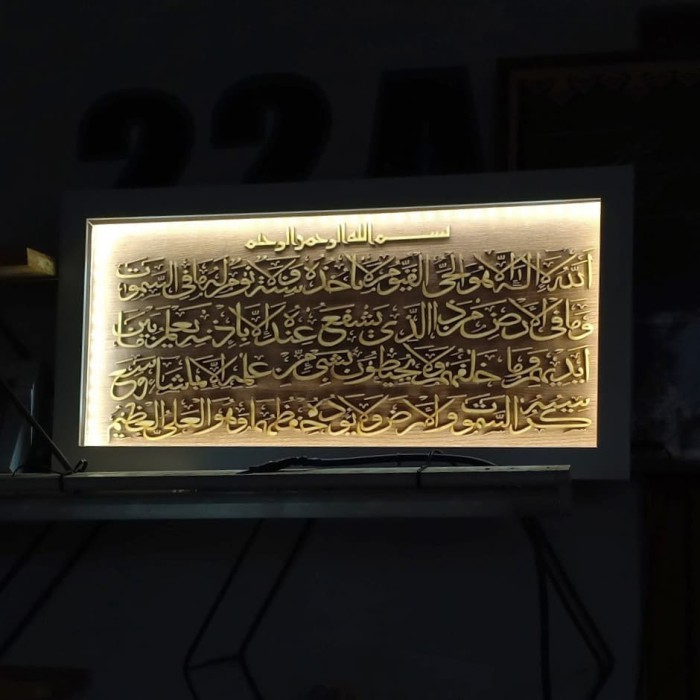 22A
بسم الله الرحمن الرحيم
الله لا إله إلا هو الحي القيوم لا تأخذه سنة ولا نوم له ما في السموات
وما في الأرض من ذا الذي يشفع عنده إلا بإذنه يعلم ما بين
أيديهم وما خلفهم ولا يحيطون بشيء من علمه إلا بما شاء وسع
كرسيه السموات والأرض ولا يؤده حفظهما وهو العلي العظيم